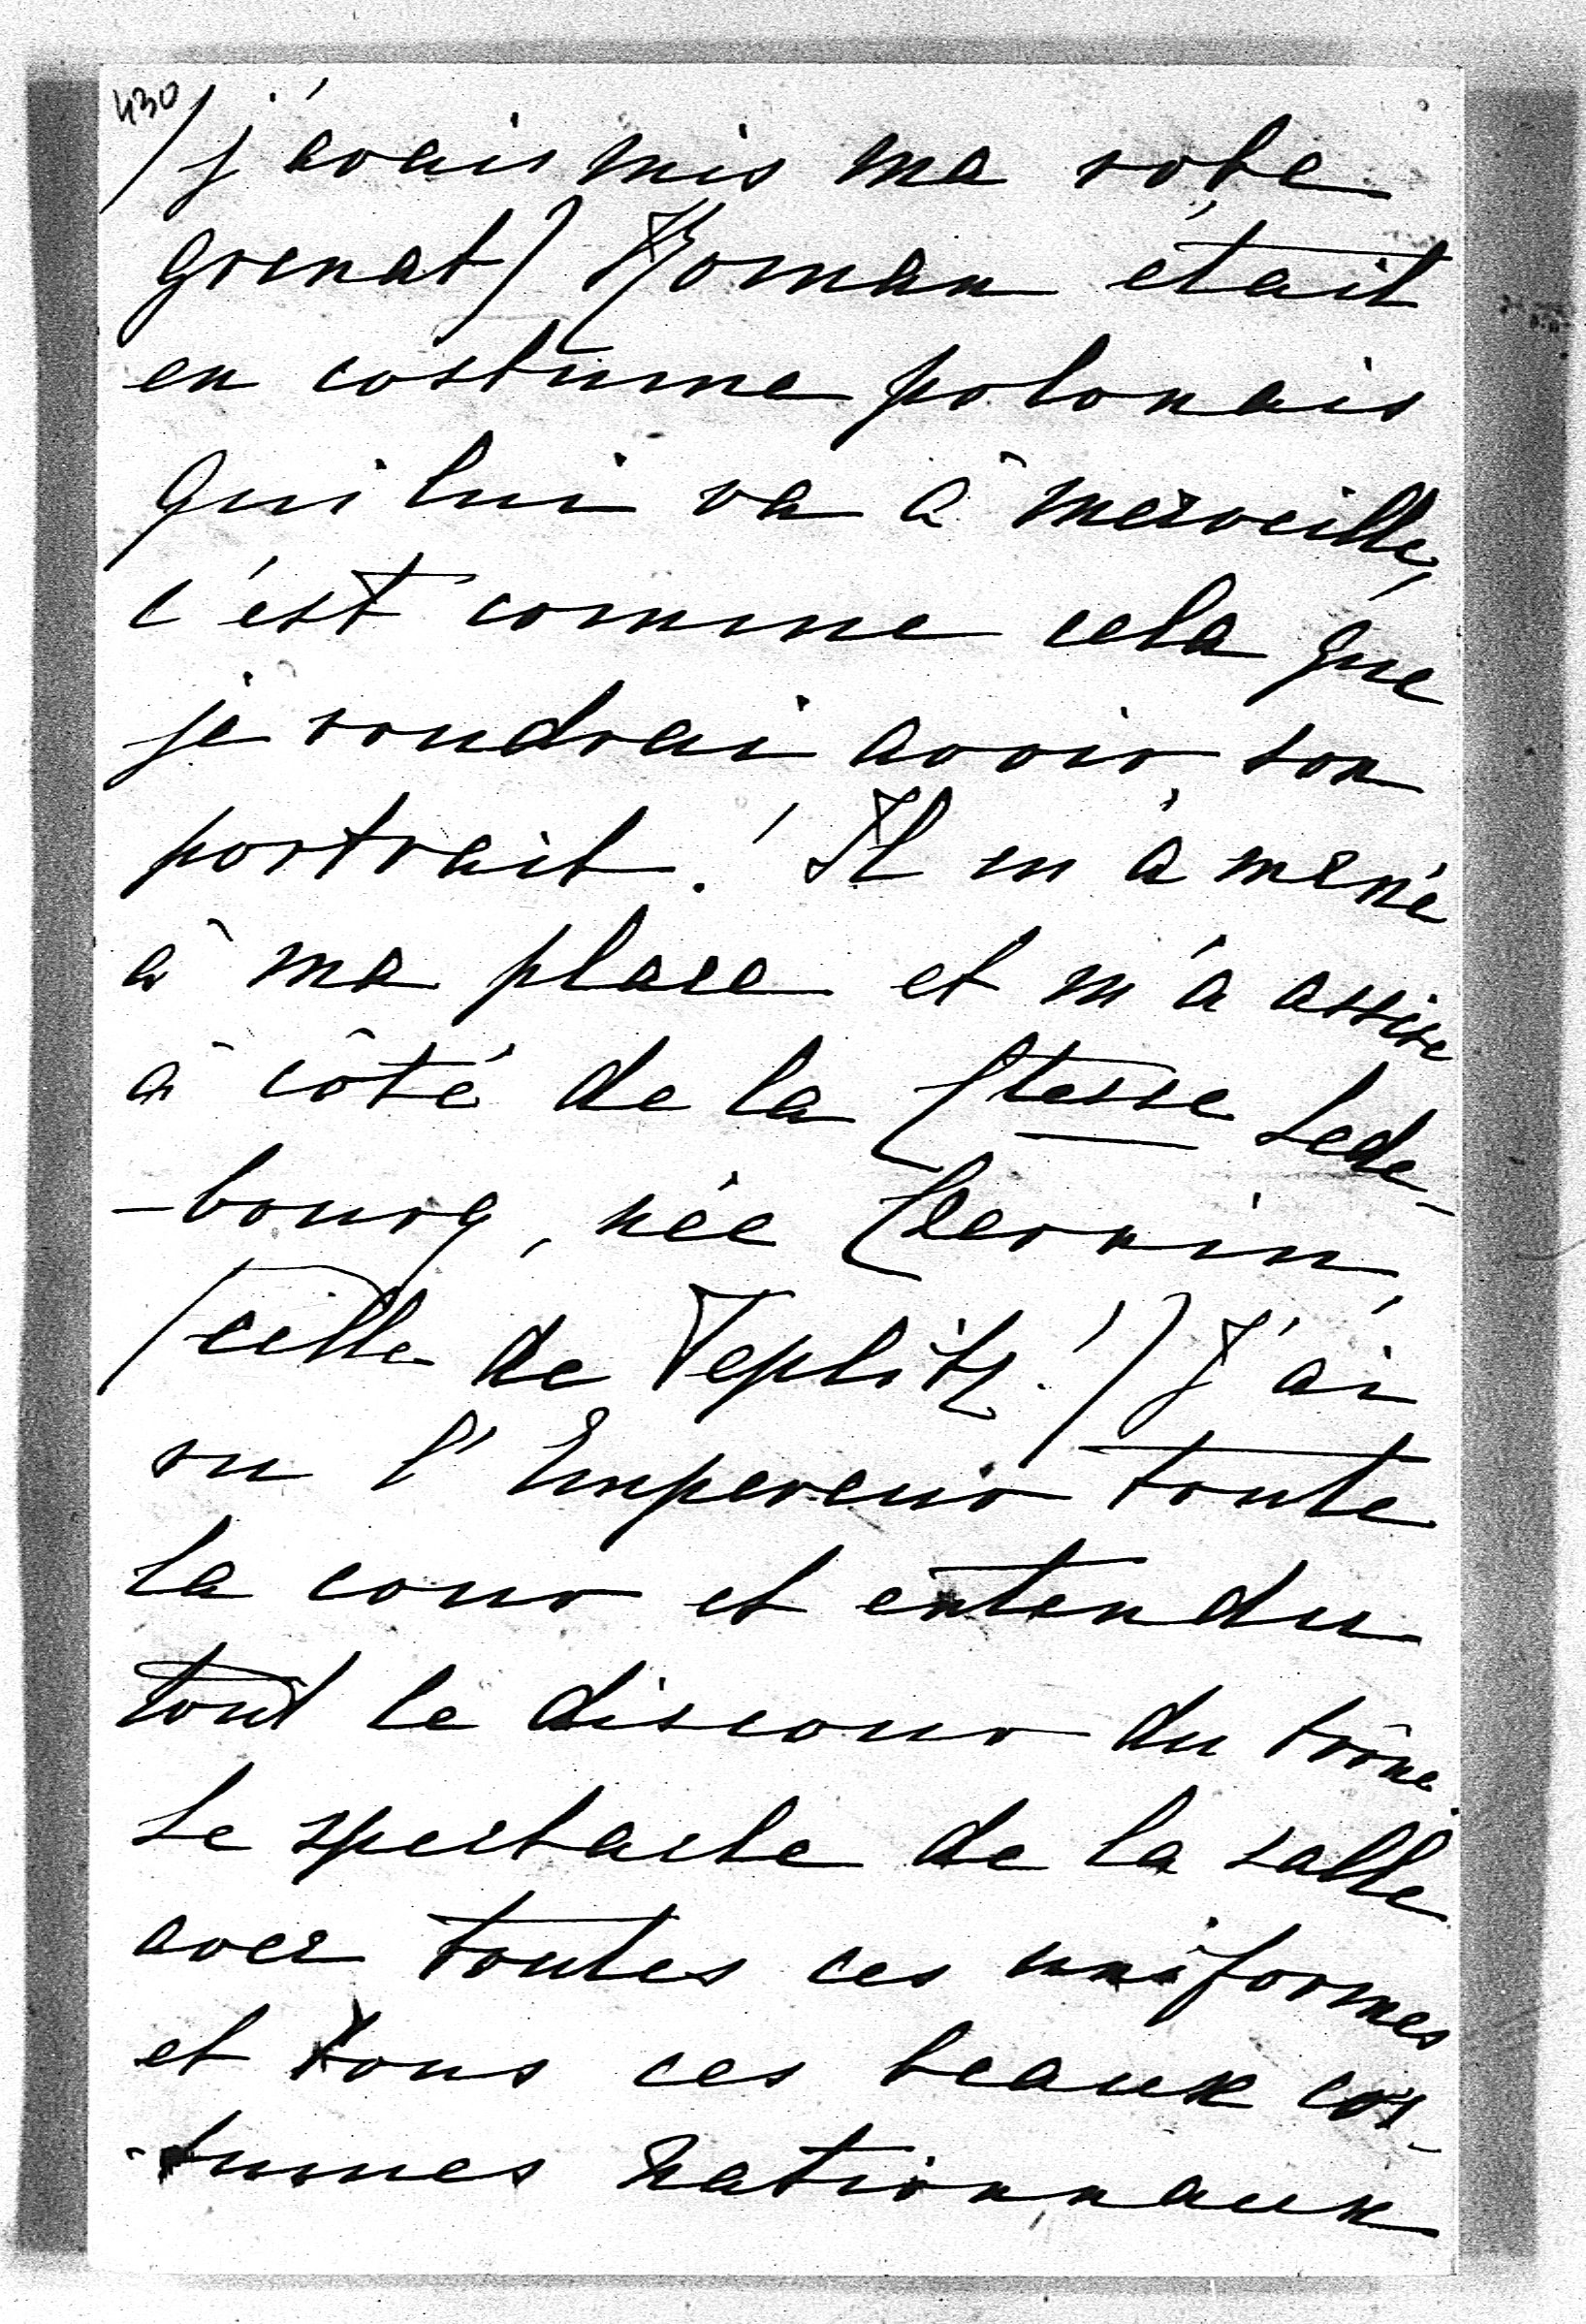 430
(j'avais mis ma robe
grenat) Roman était
en costume polonais
qui lui va à merveille,
c'est comme cela que
je voudrai avoir son
portrait! Il m'a mené
à ma place et m'a assise
à côté de la Ctesse Lede-
-bourg, née Czernin,
(celle de Teplitz!) J'ai
vu l'Empereur toute
la cour et entendu
tout le discour du trône.
Le spectacle de la salle
avec toutes ces uniformes
et tous ces beaux cos-
-tumes nationnaux